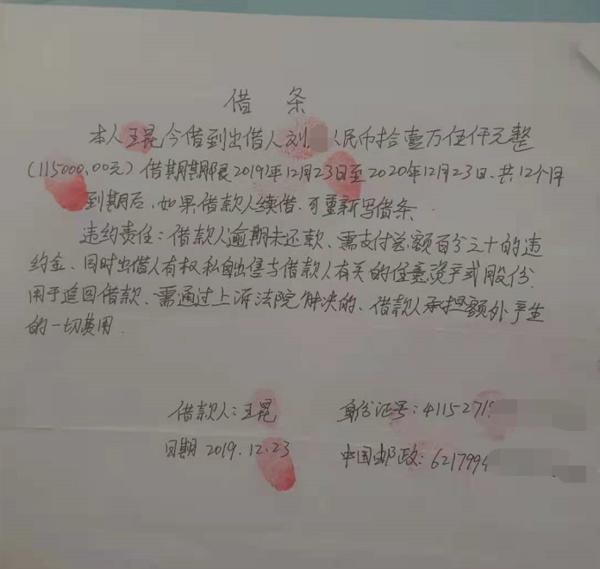 借 条
本人王昆今借到出借人刘 人民币拾壹万伍仟元整
(115000.00元) 借期期限2019年12月23日至2020年12月23日.共12个月
到期后、如果借款人续借、可重新写借条.
违约责任:借款人逾期未还款、需支付总额百分之十的违
约金、同时出借人有权私自出售与借款人有关的任意资产或股份.
用于追回借款、需通过上诉法院解决的、借款人承担额外产生
的一切费用.
借款人:王昆 身份证号:4115271
日期 2019.12.23 中国邮政:621799